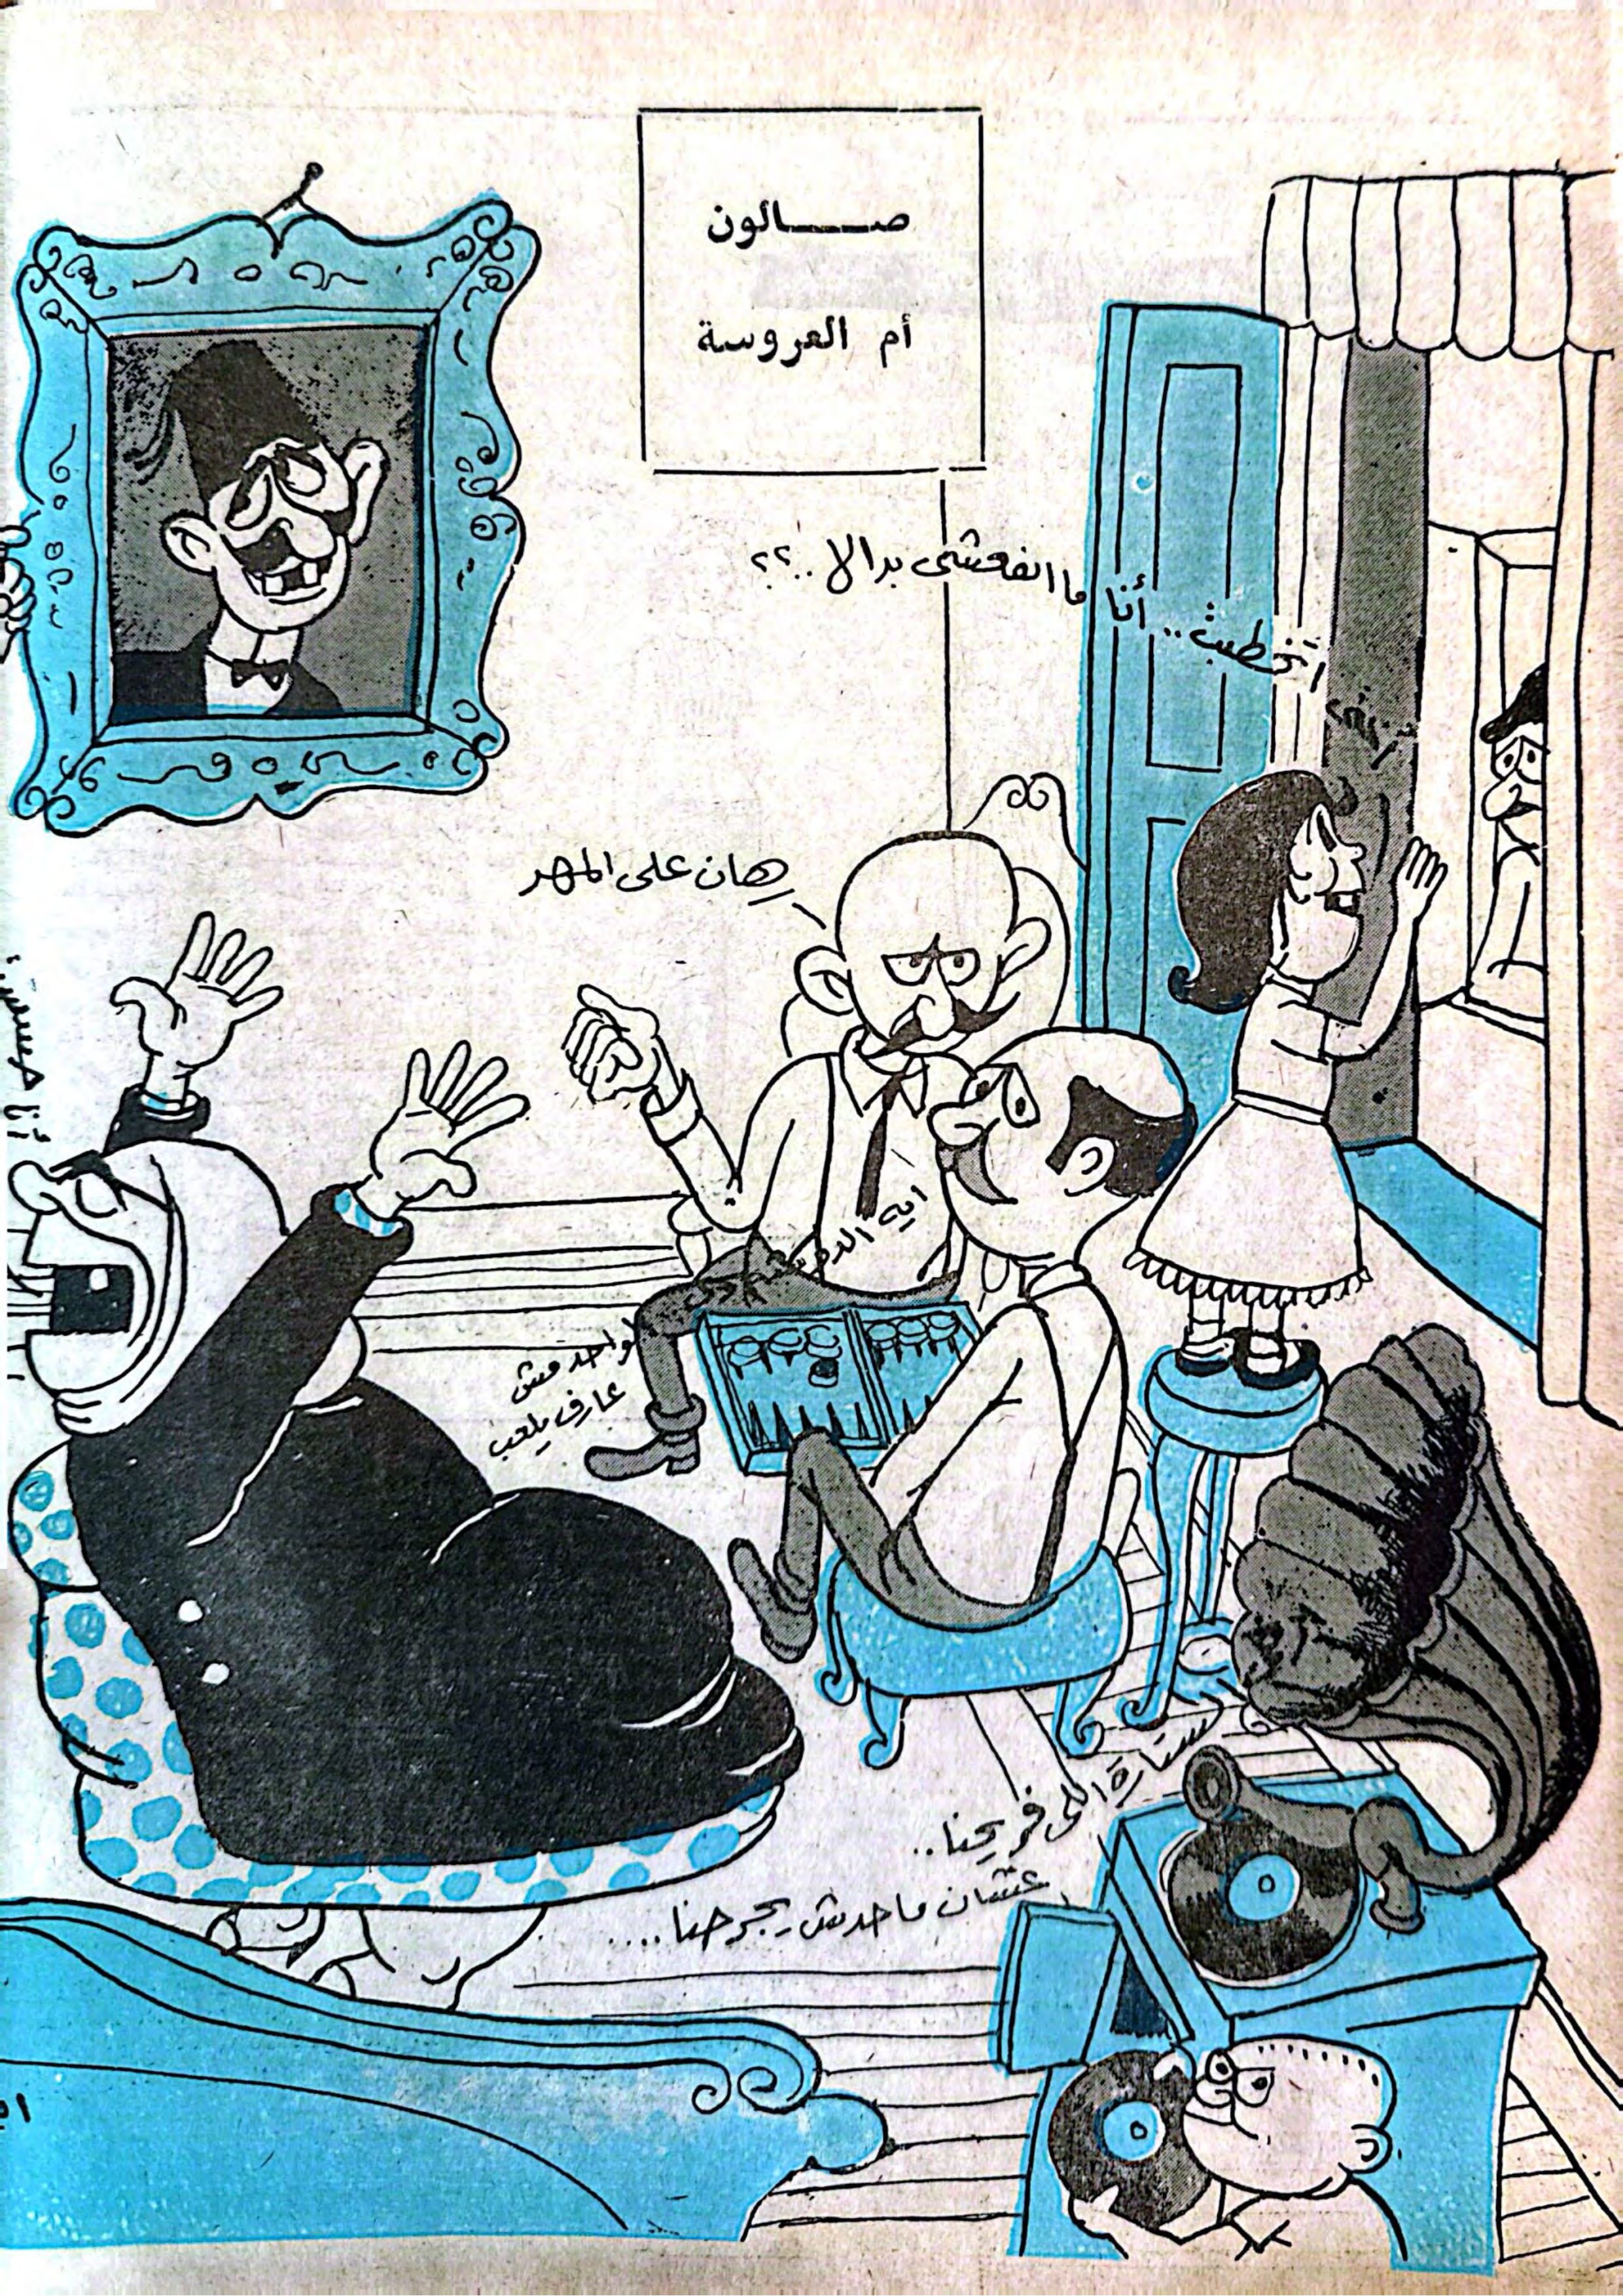 صالون
أم العروسة
اتخطبت .. أنا ما انفعشى بدالا ..؟؟
هان على المهر
ايه الدور
لواحد مش
عارف يلعب
ستارة اللى فى ريحنا ..
عشان ماحدش يجرحنا ....
أنا